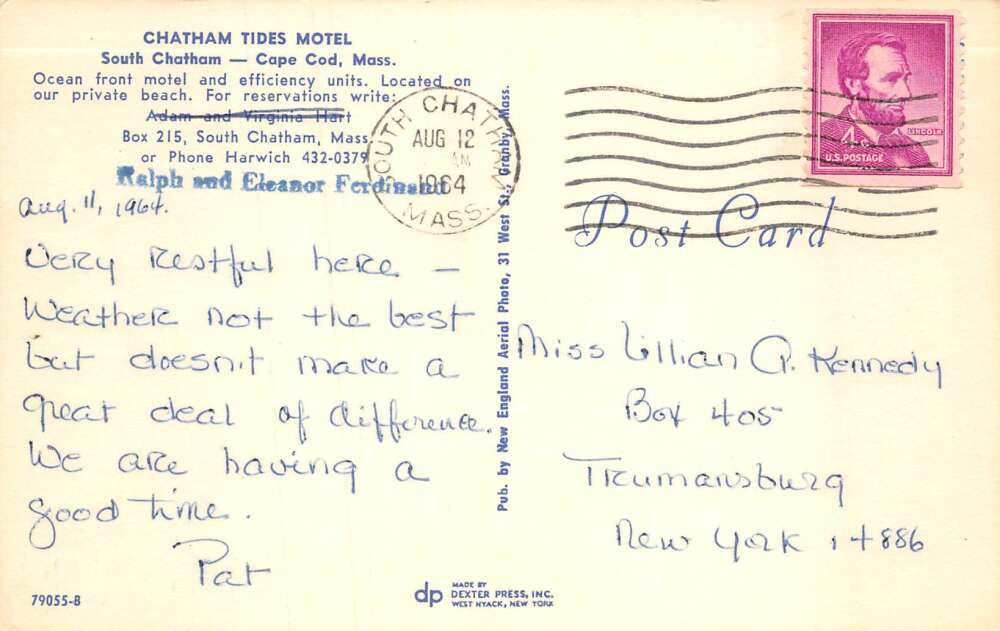 CHATHAM TIDES MOTEL
South Chatham — Cape Cod, Mass.
Ocean front motel and efficiency units. Located on
our private beach. For reservations write:
Adam and Virginia Hart
Box 215, South Chatham, Mass.
or Phone Harwich 432-0379
Ralph and Eleanor Ferdinand
Aug. 11, 1964.
Very restful here —
Weather not the best
but doesn't make a
great deal of difference.
We are having a
good time.
Pat
79055-B
SOUTH CHATHAM
AUG 12
AM
1964
MASS.
Pub. by New England Aerial Photo, 31 West St., Granby, Mass.
4¢
LINCOLN
U.S. POSTAGE
Post Card
Miss Lillian A. Kennedy
Box 405
Trumansburg
New York 14886
dp
MADE BY
DEXTER PRESS, INC.
WEST NYACK, NEW YORK